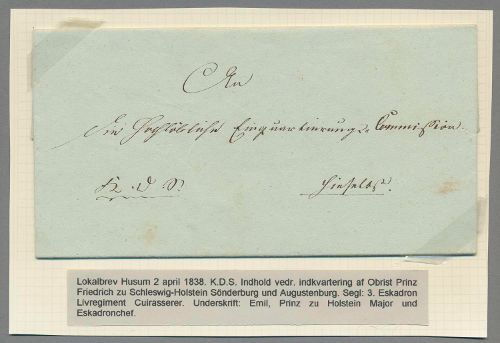 An
die Hochlöbliche Einquartierungs-Commission
K. D. S.
hieselbst.
Lokalbrev Husum 2 april 1838. K.D.S. Indhold vedr. indkvartering af Obrist Prinz
Friedrich zu Schleswig-Holstein Sönderburg und Augustenburg. Segl: 3. Eskadron
Livregiment Cuirasserer. Underskrift: Emil, Prinz zu Holstein Major und
Eskadronchef.